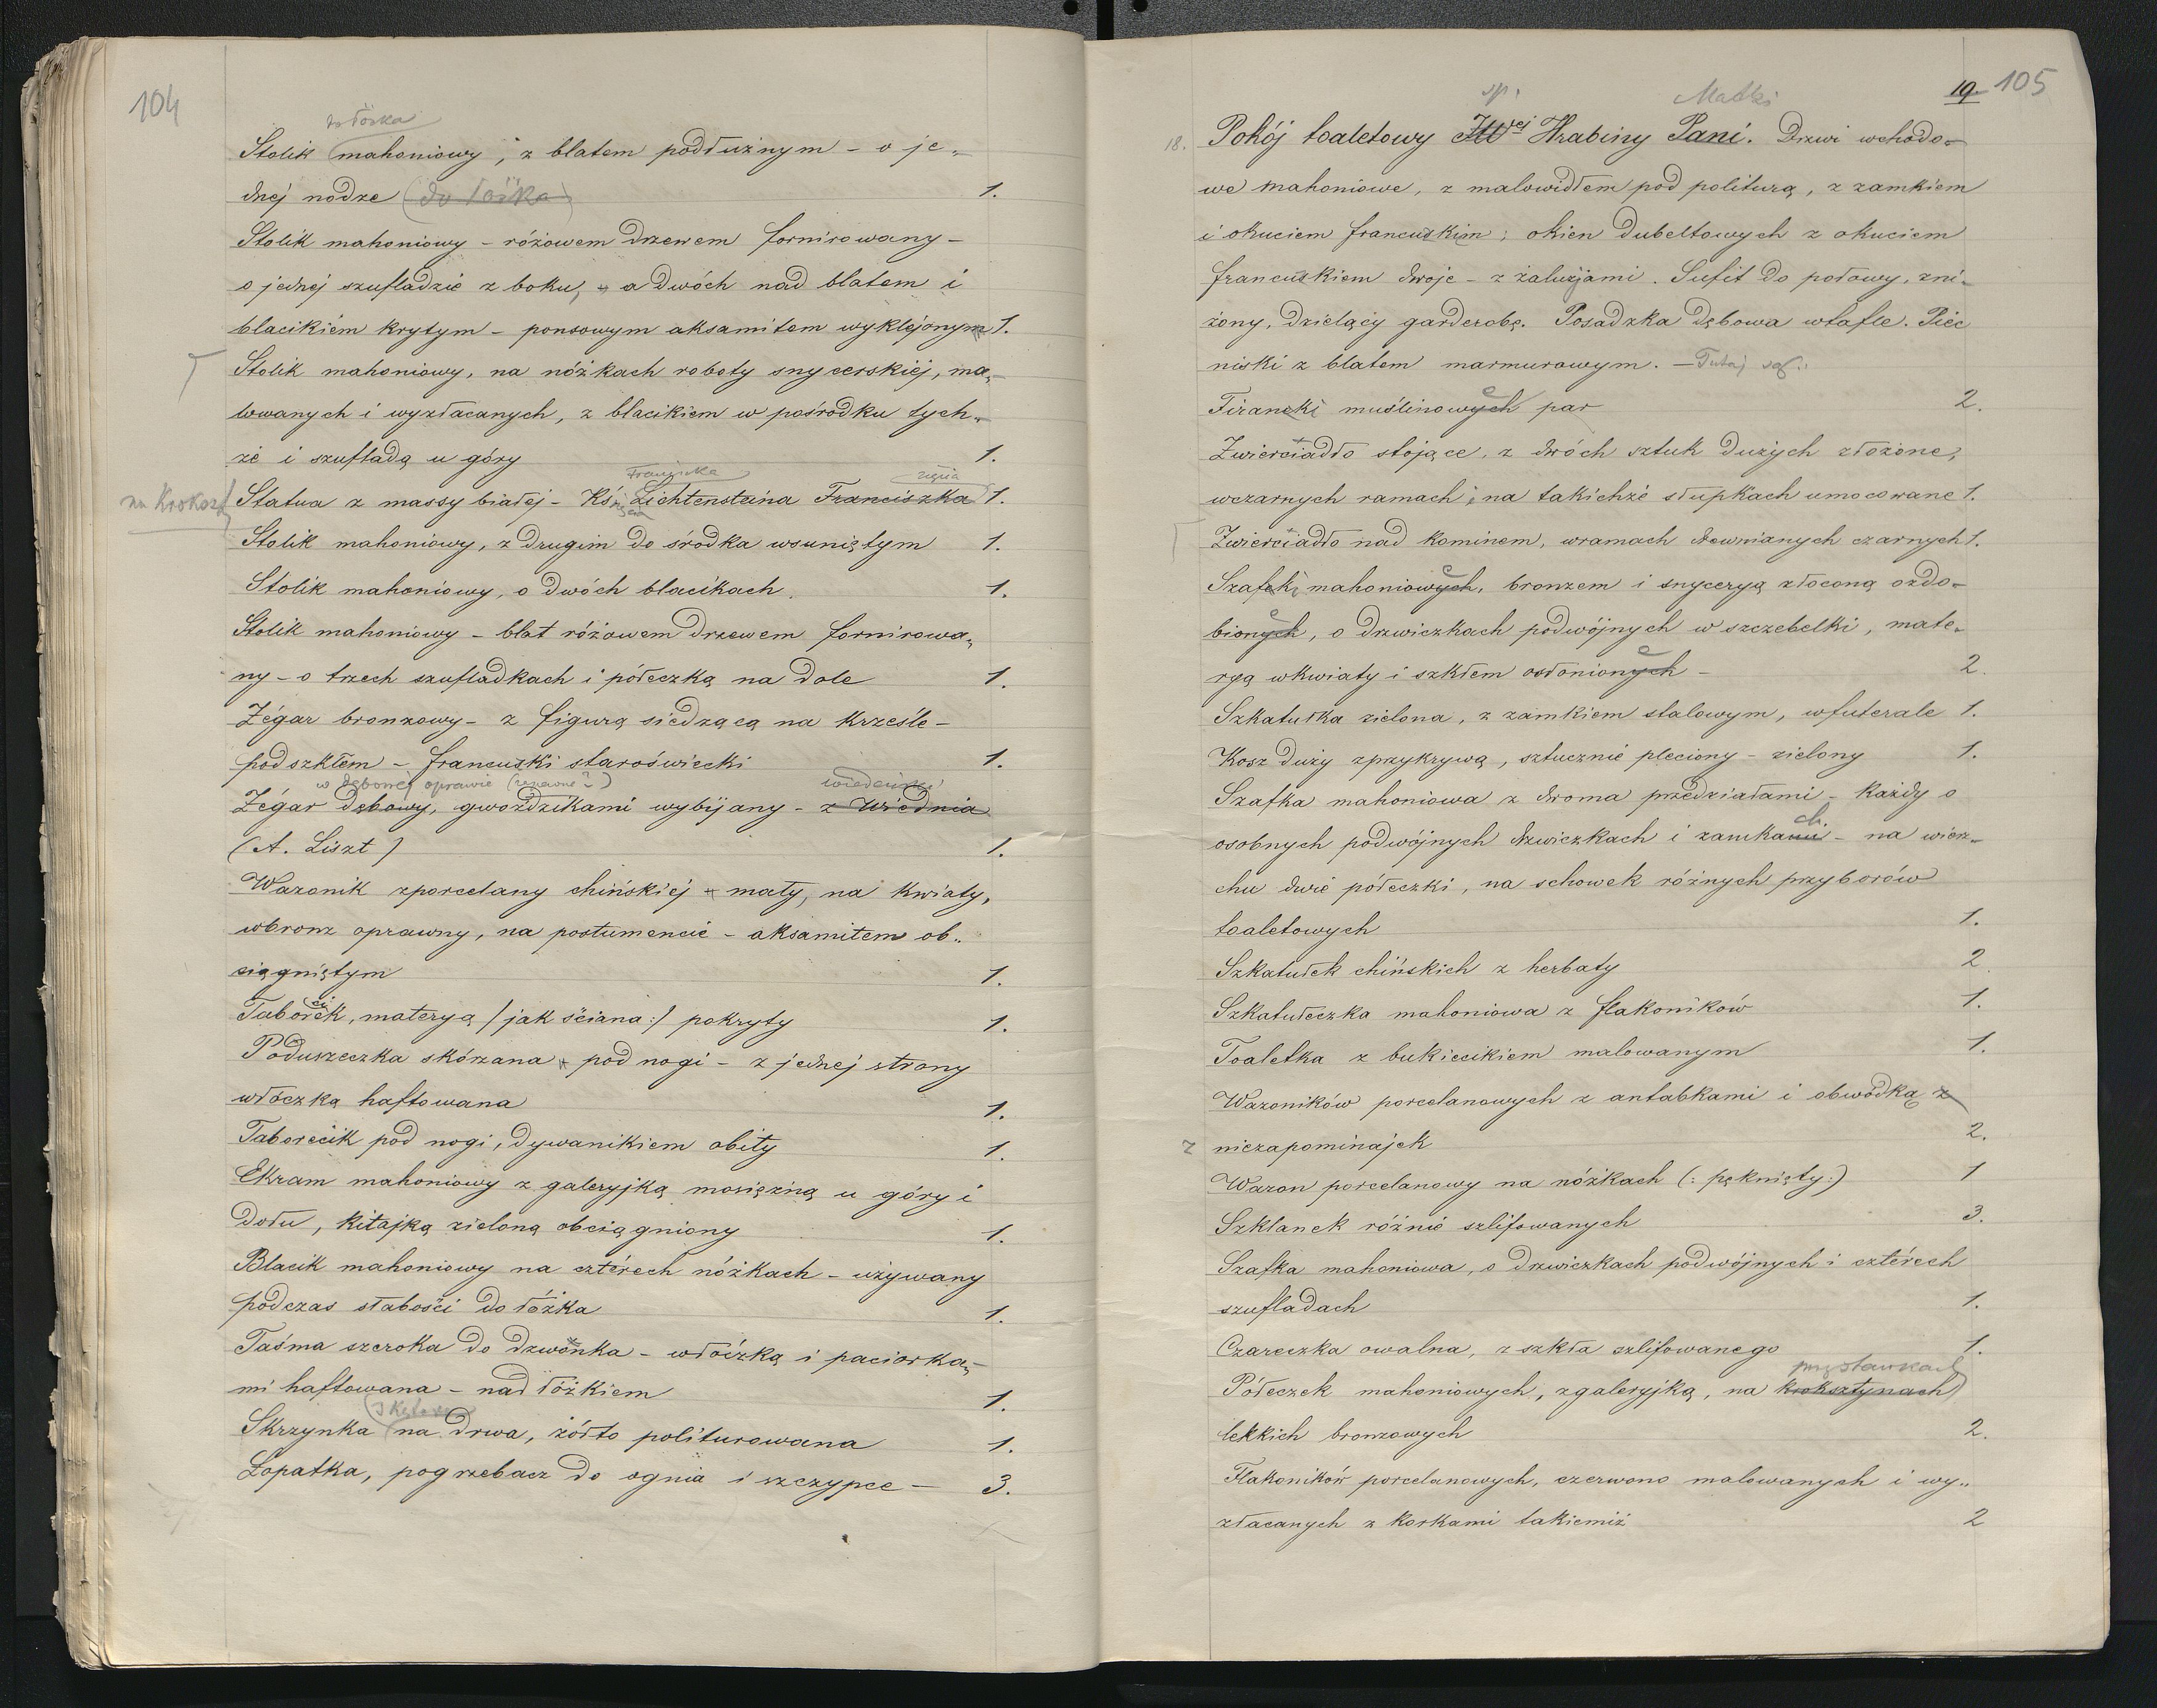 104
do łóżka
Stolik mahoniowy, z blatem podłużnym – o je-
dnej nodze (do łóżka) 1.
Stolik mahoniowy – różowem drzewem fornirowany –
o jednej szufladzie z boku, a dwóch nad blatem i
blacikiém krytym – ponsowym aksamitem wyklejonym 1.
Stolik mahoniowy, na nóżkach roboty snycerskiéj, ma-
lowanych i wyzłacanych, z blacikiem w pośrodku tych-
że i szufladą u góry 1.
Franciszka zięcia
na Krokszt
Statua z massy białej – Księcia Lichtensteina Franciszka 1.
Stolik mahoniowy, z drugim do środka wsuniętym 1.
Stolik mahoniowy, o dwóch blacikach. 1.
Stolik mahoniowy – blat różowem drzewem fornirowa-
ny – o trzech szufladkach i półeczką na dole 1.
Zégar bronzowy – z figurą siedzącą na krześle –
pod szkłem – francuski staroświecki 1.
w dębowej oprawie wiedeński
Zégar dębowy, gwoździkami wybijany – z Wiednia
(A. Liszt) 1.
Wazonik z porcelany chińskiéj mały, na kwiaty,
w bronz oprawny, na postumencie – aksamitem ob-
ciągniętym 1.
Taborecik, materyą /jak ściana:/ pokryty 1.
Poduszeczka skórzana pod nogi – z jednej strony
włóczką haftowana 1.
Taborecik pod nogi, dywanikiem obity 1.
Ekram mahoniowy z galeryjką mosiężną u góry i
dołu, kitajką zieloną obciągniony 1.
Blacik mahoniowy na cztérech nóżkach – używany
podczas słabości do łóżka 1.
Taśma szeroka do dzwonka – włóczką i paciorka-
mi haftowana – nad łóżkiem 1.
Skrzynka na drwa, żółto politurowana 1.
Łopatka, pogrzebacz do ognia i szczypce – 3.
19. 105
śp. Matki
18. Pokój toaletowy JWej Hrabiny Pani. Drzwi wchodo-
we mahoniowe, z malowidłem pod politurą, z zamkiem
i okuciem francuskim; okien dubeltowych z okuciem
francuskiem dwoje – z żaluzjami. Sufit do połowy, zni-
żony, dzielący garderobę. Posadzka dębowa w tafle. Piec
niski z blatem marmurowym. – Tutaj są:
Firanki muślinowych par 2.
Zwierciadło stojące, z dwóch sztuk dużych złożone,
w czarnych ramach i na takichże słupkach umocowane 1.
Zwierciadło nad kominem, w ramach drewnianych czarnych 1.
Szafeki mahoniowych, bronzem i snyceryą złoconą ozdo-
bionych, o drzwiczkach podwójnych w szczebelki, mate-
ryą w kwiaty i szkłem osłonionych – 2.
Szkatułka zielona, z zamkiem stalowym, w futerale 1.
Kosz duży z przykrywą, sztucznie pleciony – zielony 1.
Szafka mahoniowa z dwoma przedziałami – każdy o
osobnych podwójnych drzwiczkach i zamkach – na wierz-
chu dwie półeczki, na schowek różnych przyborów
toaletowych 1.
Szkatułek chińskich z herbaty 2.
Szkatułeczka mahoniowa z flakoników 1.
Toaletka z bukiecikiem malowanym 1.
Wazoników porcelanowych z antabkami i obwódką z
z niezapominajek 2.
Wazon porcelanowy na nóżkach (: pęknięty:) 1
Szklanek różnie szlifowanych 3.
Szafka mahoniowa, o drzwiczkach podwójnych i cztérech
szufladach 1.
Czareczka owalna, z szkła szlifowanego 1.
przystawkach
Półeczek mahoniowych, z galeryjką, na kroksztynach
lekkich bronzowych 2.
Flakoników porcelanowych, czerwono malowanych i wy-
złacanych z korkami takiemiż 2